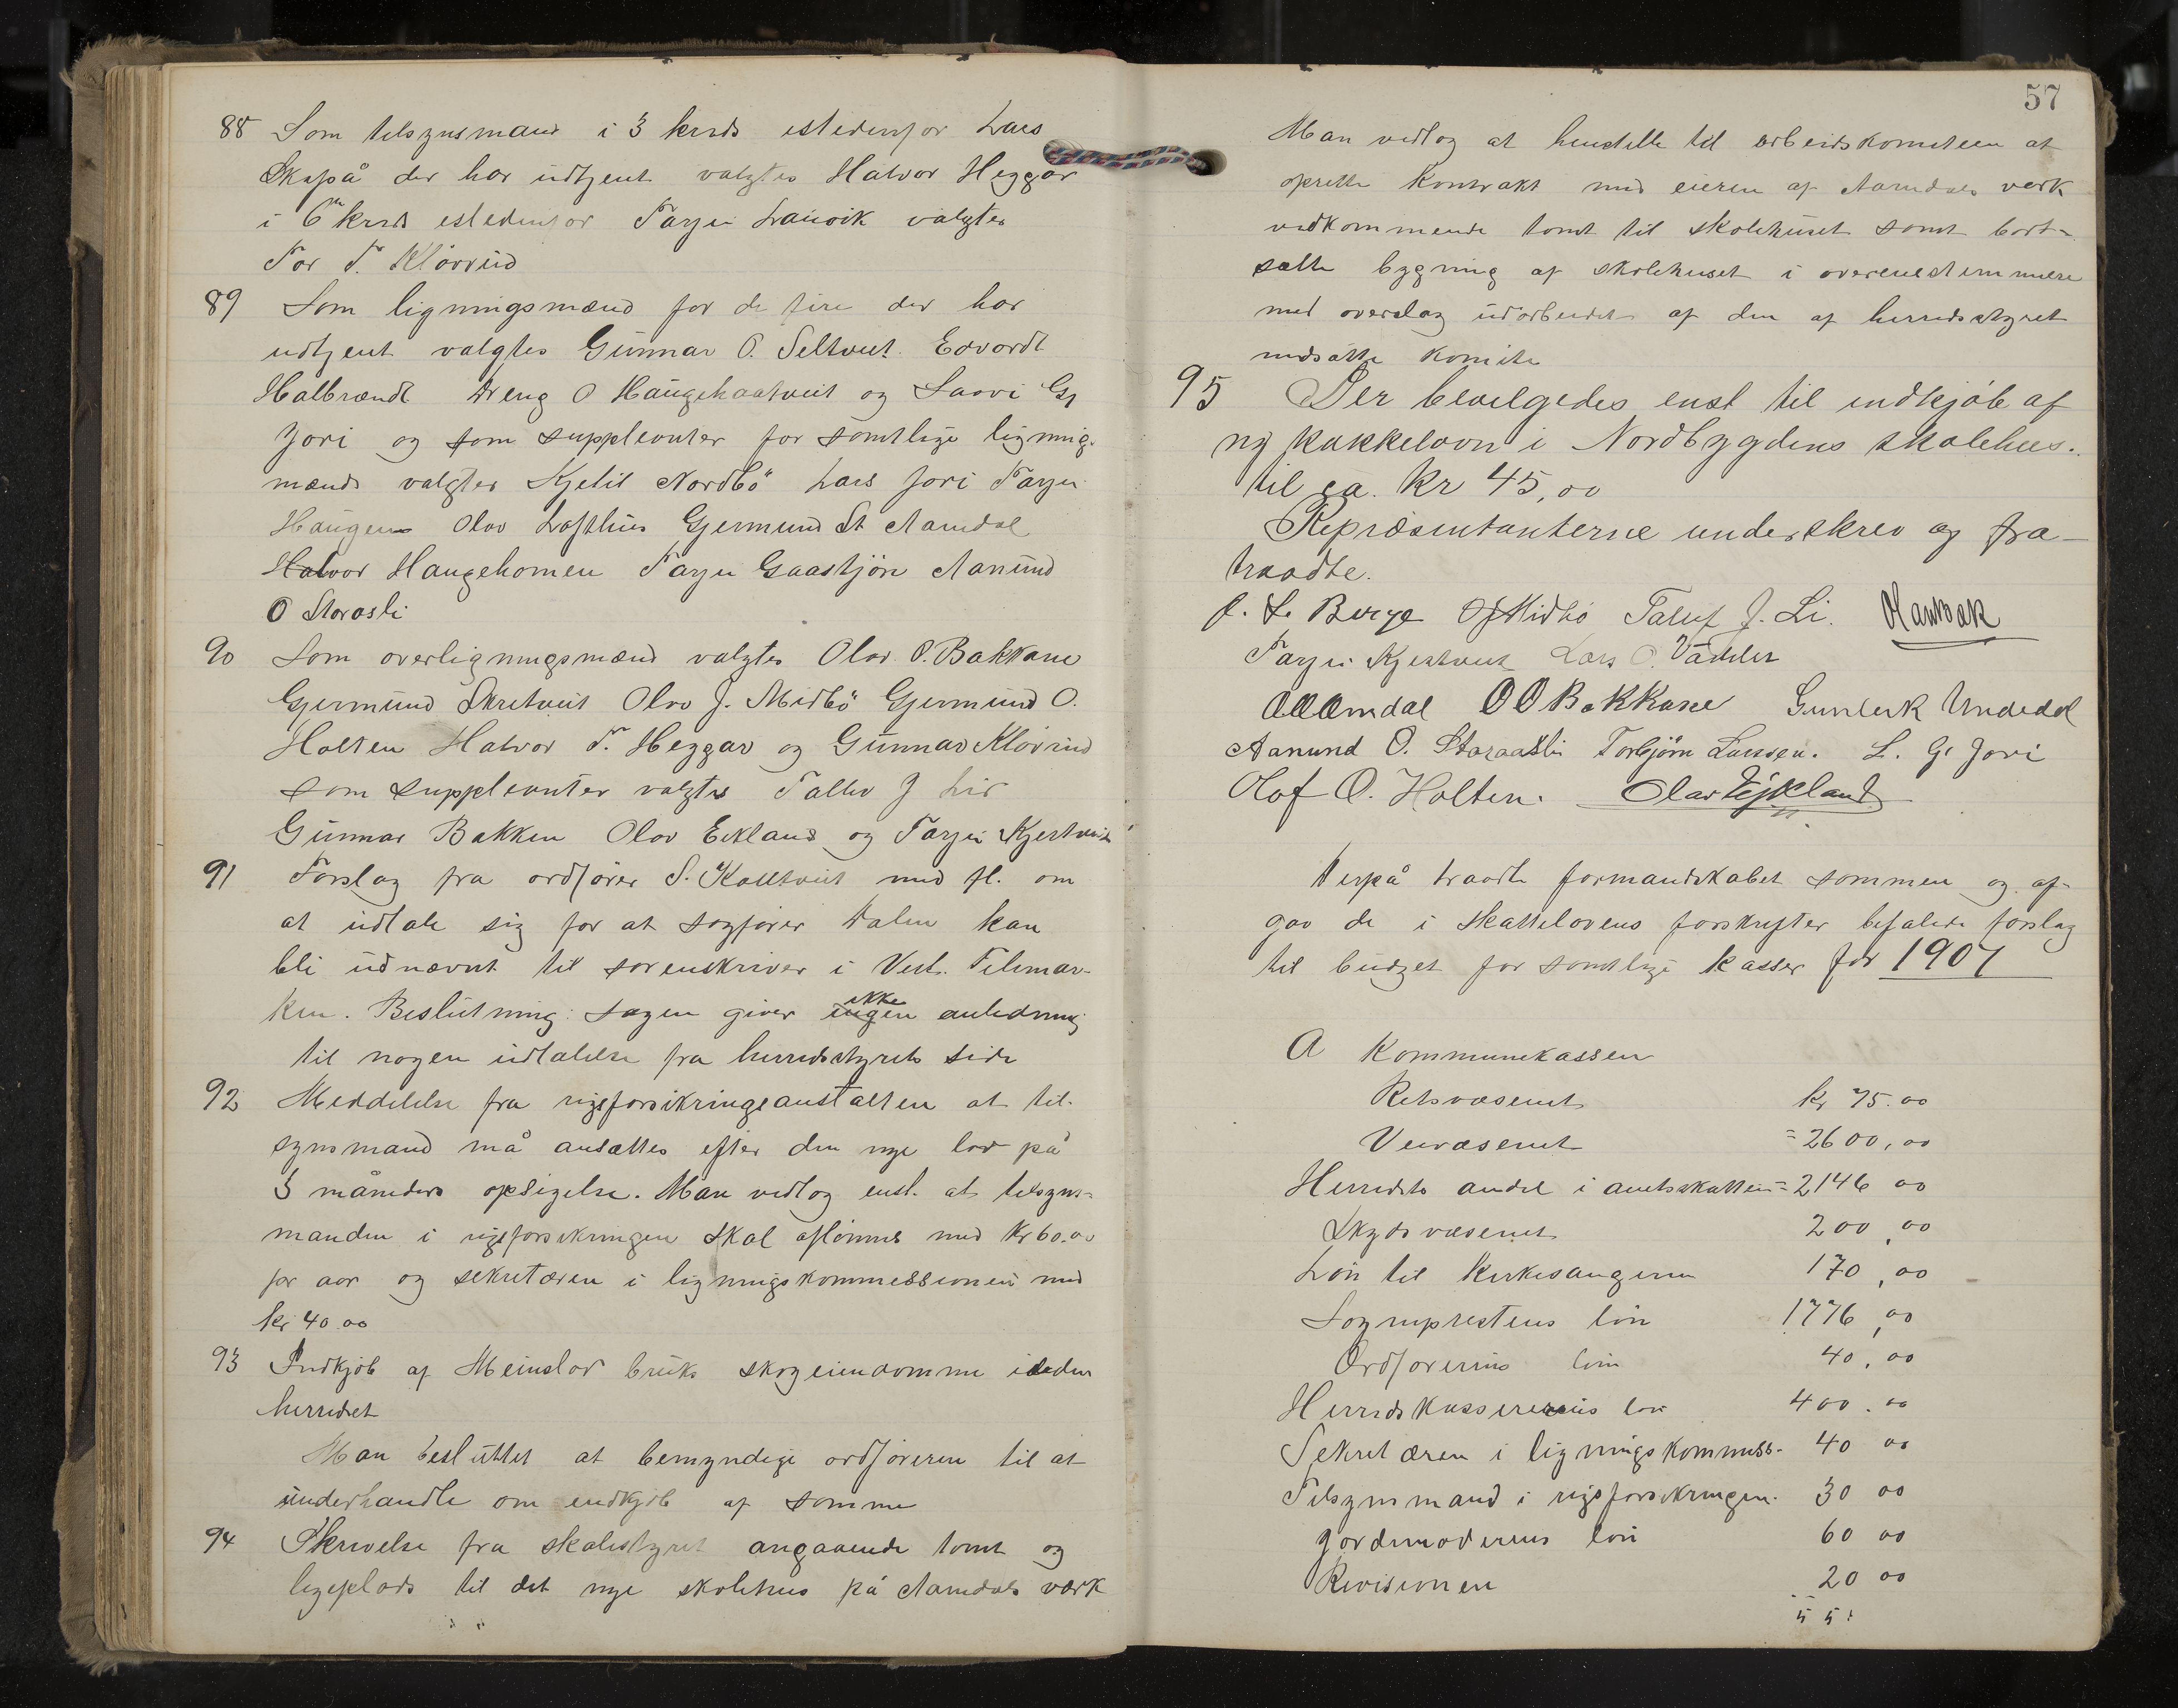 88 Som tilsynsmand i 3 kreds istedenfor Lars
Skapå der har udtjent valgtes Halvor Heggar
i 6 kreds istedenfor Tarjei Lauvik valgtes
Tor T. Klovrud
89 Som ligningsmænd for de fire der har
udtjent valgtes Gunnar O. Seltveit. Edvardt
Halbrændt Dreng O Haugekaatveit og Saavi Gj
Jori og som suppleanter for samtlige lignings
mænd valgtes Kjetil Nordbö Lars Jori Tarjei
Haugen Olav Lofthus Gjermund St Aamdal
Halvor Haugehomen Tarjei Gaastjön Aanund
O Storasli
90 Som overligningsmænd valgtes Olav O. Bakkane
Gjermund Skretveit Olav J. Midbö Gjermund O.
Holten Halvor T. Heggar og Gunnar Klovrud
som suppleanter valgtes Tallev J Lid
Gunnar Bakken Olav Eikland og Tarjei Kjestveit
91 Forslag fra ordförer S. Kolltveit med fl. om
at udtale sig for at sagförer Dalen kan
bli udnævnt til sorenskriver i Vest. Telemar-
ken. Beslutning: Sagen giver ikke anledning
til nogen udtalelse fra herredsstyrets side
92 Meddelelse fra rigsforsikringsanstalten at til-
synsmand må ansættes efter den nye lov på
3 måneders opsigelse. Man vedtog enst. at tilsyns-
manden i rigsforsikringen skal aflönnes med Kr 60.00
pr aar og sekretæren i ligningskommissionen med
kr 40.00
93 Indkjöb af Meinstad bruks skogeiendomme i
herredet
Man besluttet at bemyndige ordföreren til at
underhandle om indkjöb af samme
94 Skrivelse fra skolestyret angaaende tomt og
legeplads til det nye skolehus på Aamdals værk
57
Man vedtog at henstille til arbeidskomiteen at
oprette Kontrakt med eieren af Aamdals verk
vedkommende tomt til skolehuset samt bort-
sætte bygning af skolehuset i overenstemmelse
med overslag udarbeidet af den af herredsstyret
nedsatte komite
95 Der bevilgedes enst til indkjöb af
ny kakkelovn i Nordbygdens skolehus.
til ca. Kr 45,00
Repræsentanterne underskrev og fra-
traadte.
J. L. Berge O J Midbö Taluf J. Li.
Tarjei Kjestveit Lars O.
O O Omdal O O Bakkane Gunleik Undedal
Aanund O. Storaasli Torbjörn Larsen. L. G. Jori
Olof O. Holten. Olav Eikland
Derpå traadte formandskabet sammen og af-
gav de i skattelovens forskrifter befalede forslag
til budget for samtlige kasser for 1907
A Kommunekassen
Retsvæsenet kr 75.00
Veivæsenet = 2600,00
Herredets andel i amtsskatten = 2146 00
Skydsvæsenet 200,00
Lön til Kirkesangeren 170,00
Sogneprestens lön 1776,00
Ordförerens lön 40,00
Herredskassererens lön 400.00
Sekretæren i ligningskommiss. 40 00
Tilsynsmand i rigsforsikringen. 30 00
Jordemoderens lön 60 00
Revisionen 20 00